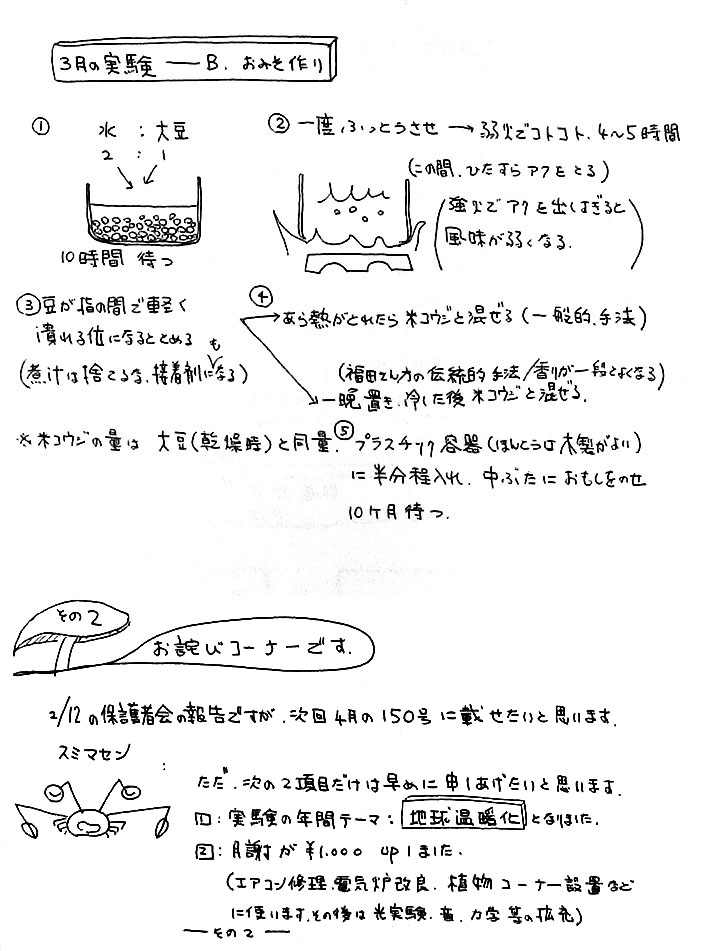 3月の実験 ― B. おみそ作り
① 水 : 大豆
2 : 1
10時間 待つ
② 一度、ふっとうさせ → 弱火でコトコト、4〜5時間
(この間、ひたすらアクをとる)
(強火でアクを出しすぎると
風味が弱くなる.)
③豆が指の間で軽く
潰れる位になるととめる
(煮汁は捨てるな、接着剤にもなる)
④ あら熱がとれたら 米コウジと混ぜる (一般的、手法)
(福田さん方の伝統的手法/香りが一段とよくなる)
一晩置き、冷した後 米コウジと混ぜる.
※米コウジの量は 大豆(乾燥時)と同量.
⑤ プラスチック容器(ほんとうは木製がよい)
に半分程入れ、中ぶたにおもしをのせ
10ヶ月待つ.
その2
お詫びコーナーです.
2/12の保護者会の報告ですが、次回4月の150号に載せたいと思います.
スミマセン
ただ、次の2項目だけは早めに申しあげたいと思います.
1: 実験の年間テーマ: 地球温暖化 となりました.
2: 月謝が ¥1,000 upしました.
(エアコン修理、電気炉改良、植物コーナー設置など
に使います、その後は光実験、音、力学 等の拡充)
― その2 ―